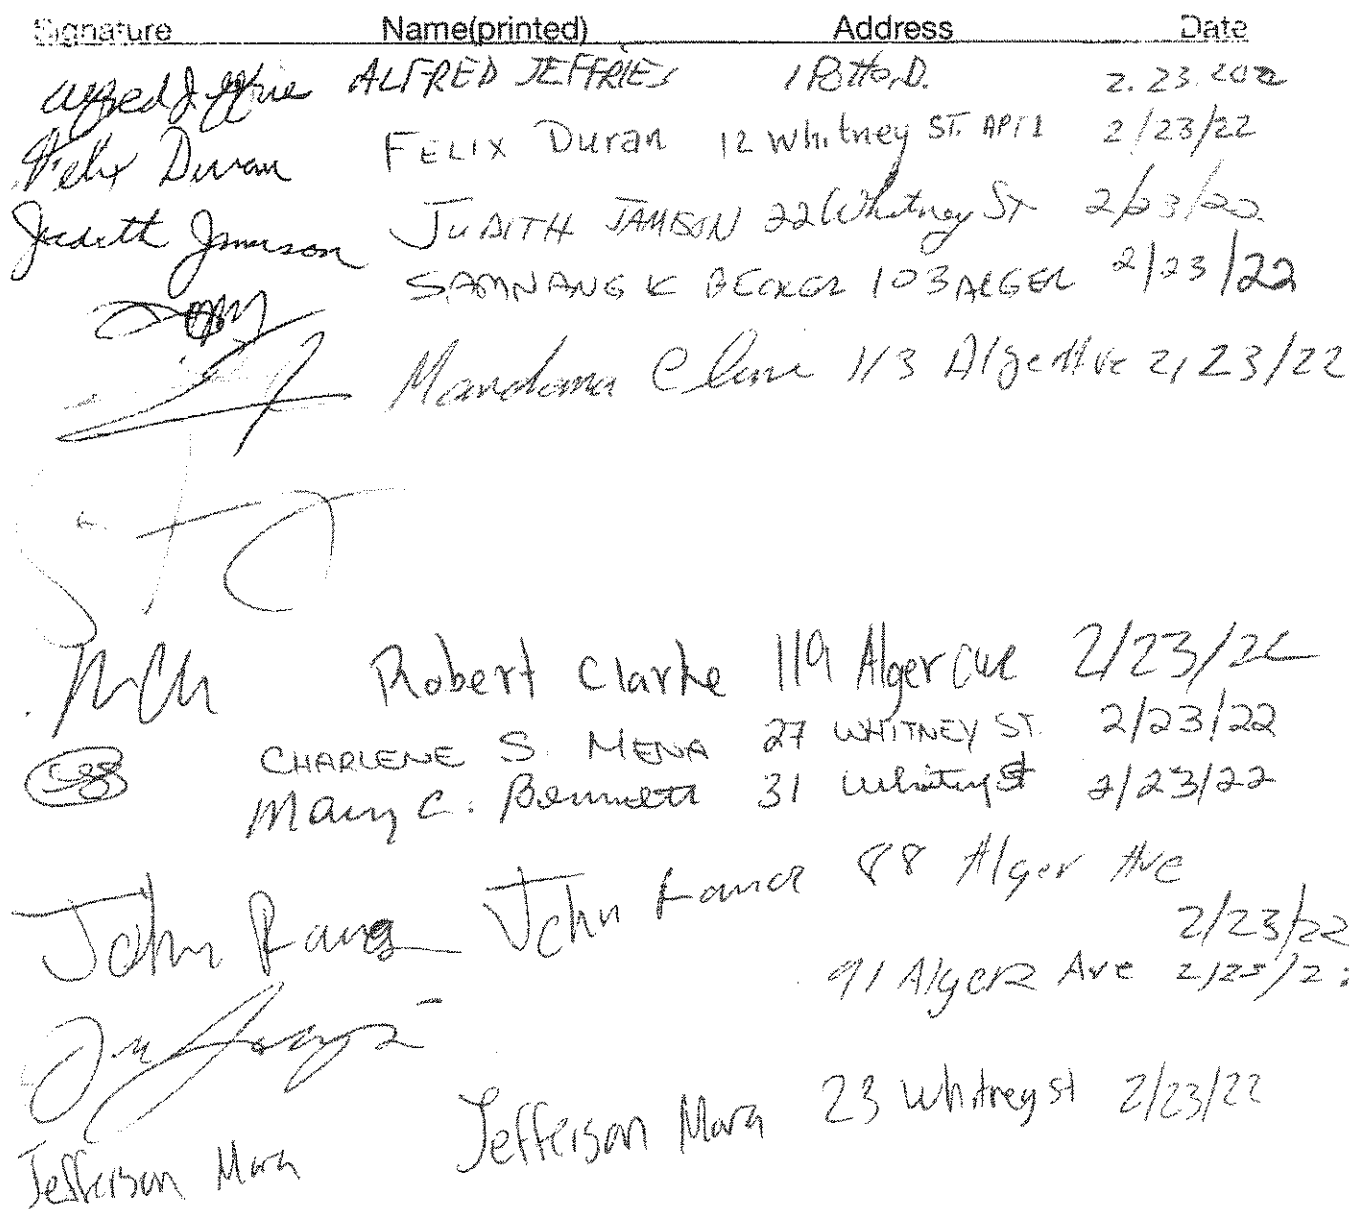 Signature Name(printed) Address Date
Alfred Jeffrie ALFRED JEFFRIES 1 Potter D. 2.23.202
Felix Duran FELIX Duran 12 Whitney ST. APT 1 2/23/22
Judith Jamison JUDITH JAMISON 22 Whitney St 2/23/22
SAMNANG K BECKER 103 ALGER 2/23/22
Mandana 113 Alger Ave 2/23/22
Robert Clarke 119 Alger ave 2/23/22
CHARLENE S. MENA 27 WHITNEY ST. 2/23/22
Mary C. Bennett 31 Whitney St 2/23/22
John John 88 Alger Ave
2/23/22
91 Alger Ave
Jefferson Mora Jefferson Mora 23 Whitney st 2/23/22